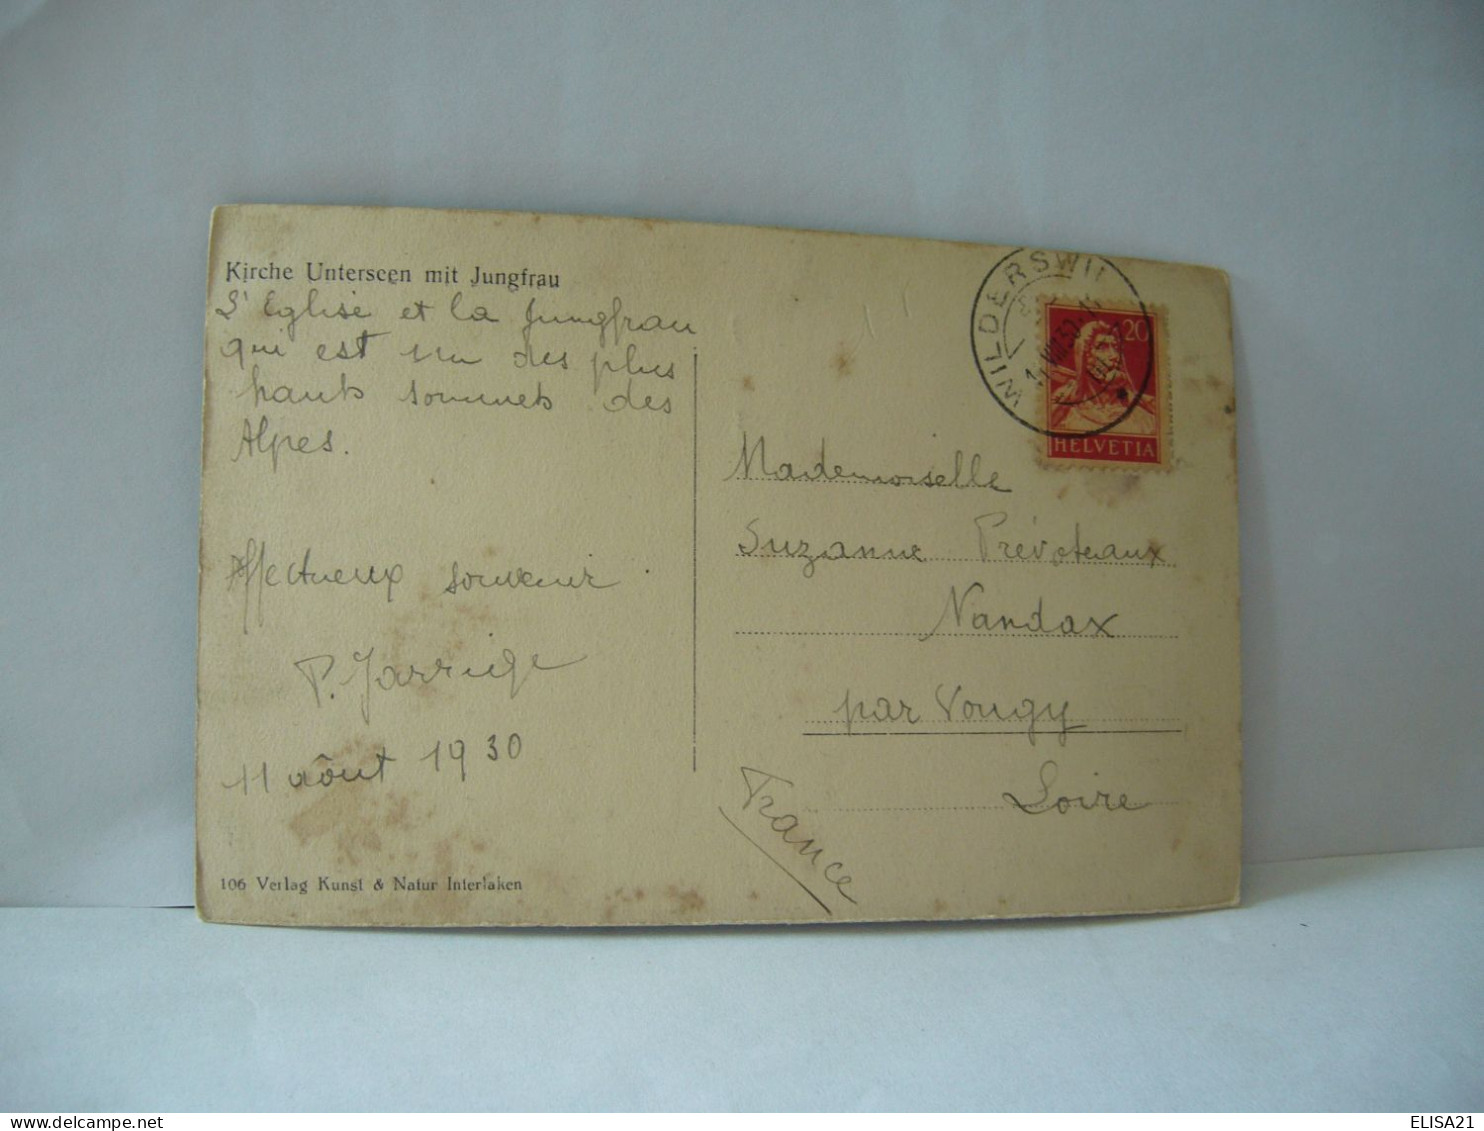 Kirche Unterseen mit Jungfrau
L'Eglise et la Jungfrau
qui est un des plus
hauts sommets des
Alpes.
Affectueux souvenir.
P. Jarrige
11 aôut 1930
106 Verlag Kunst & Natur Interlaken
WILDERSWIL
20
HELVETIA
Mademoiselle
Suzanne Prévoteaux
Nandax
par Vougy
Loire
France
ELISA21